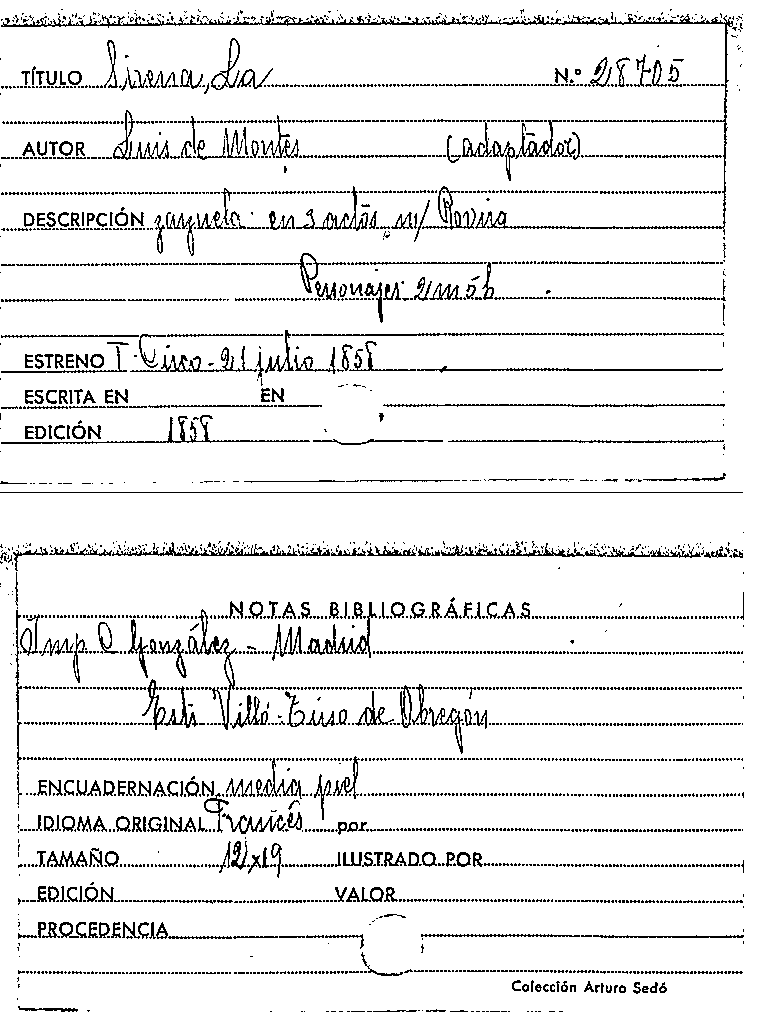 TÍTULO Sirena, La N.º 28705
AUTOR Luis de Montes (adaptador)
DESCRIPCIÓN zarzuela en 3 actos, m/ Rovira
Personajes 2m 5h
ESTRENO T. Circo - 21 julio 1858
ESCRITA EN EN
EDICIÓN 1858
NOTAS BIBLIOGRÁFICAS
Imp C González - Madrid
Villó - de Obregón
ENCUADERNACIÓN media piel
IDIOMA ORIGINAL Francés por
TAMAÑO 12x19 ILUSTRADO POR
EDICIÓN VALOR
PROCEDENCIA
Colección Arturo Sedó